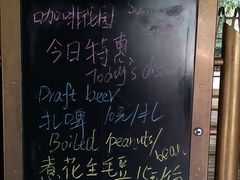 咖啡花园
今日特惠
Today's
Draft beer
扎啤 10元/扎
Boiled peanuts/bean
煮花生毛豆